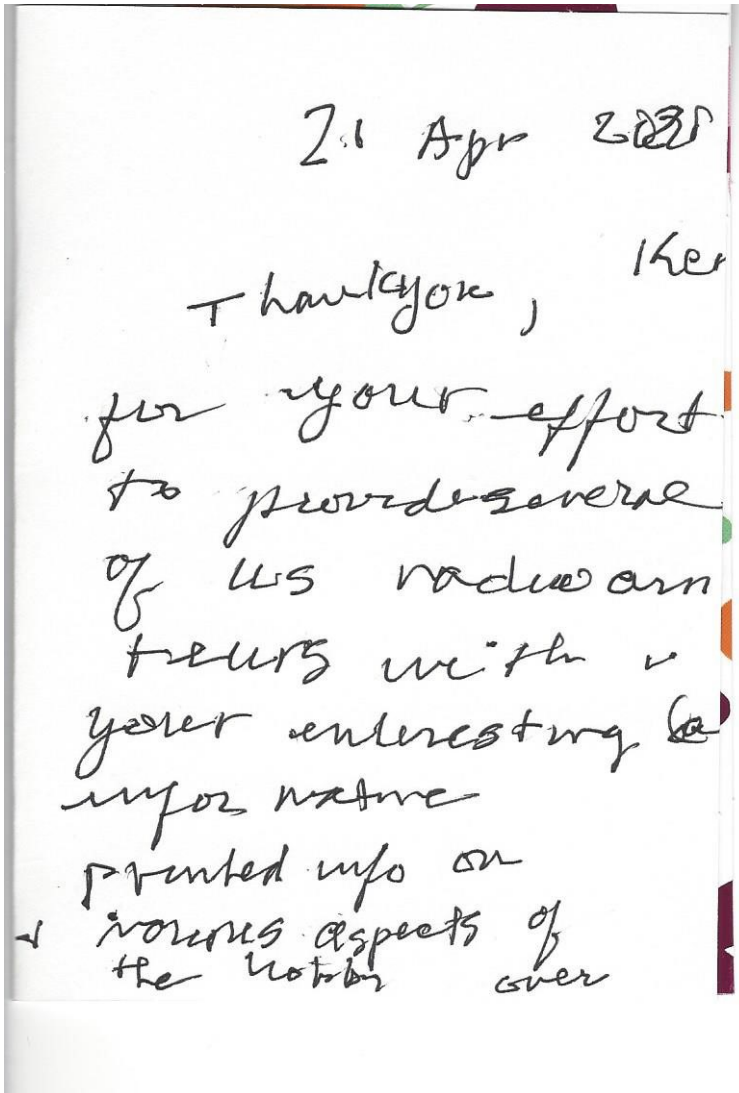 21 Apr
Ken
Thankyou,
for your effort
to provide several
of us radio am
teurs with
your interesting &
informative
printed info on
various aspects of
the hobby over